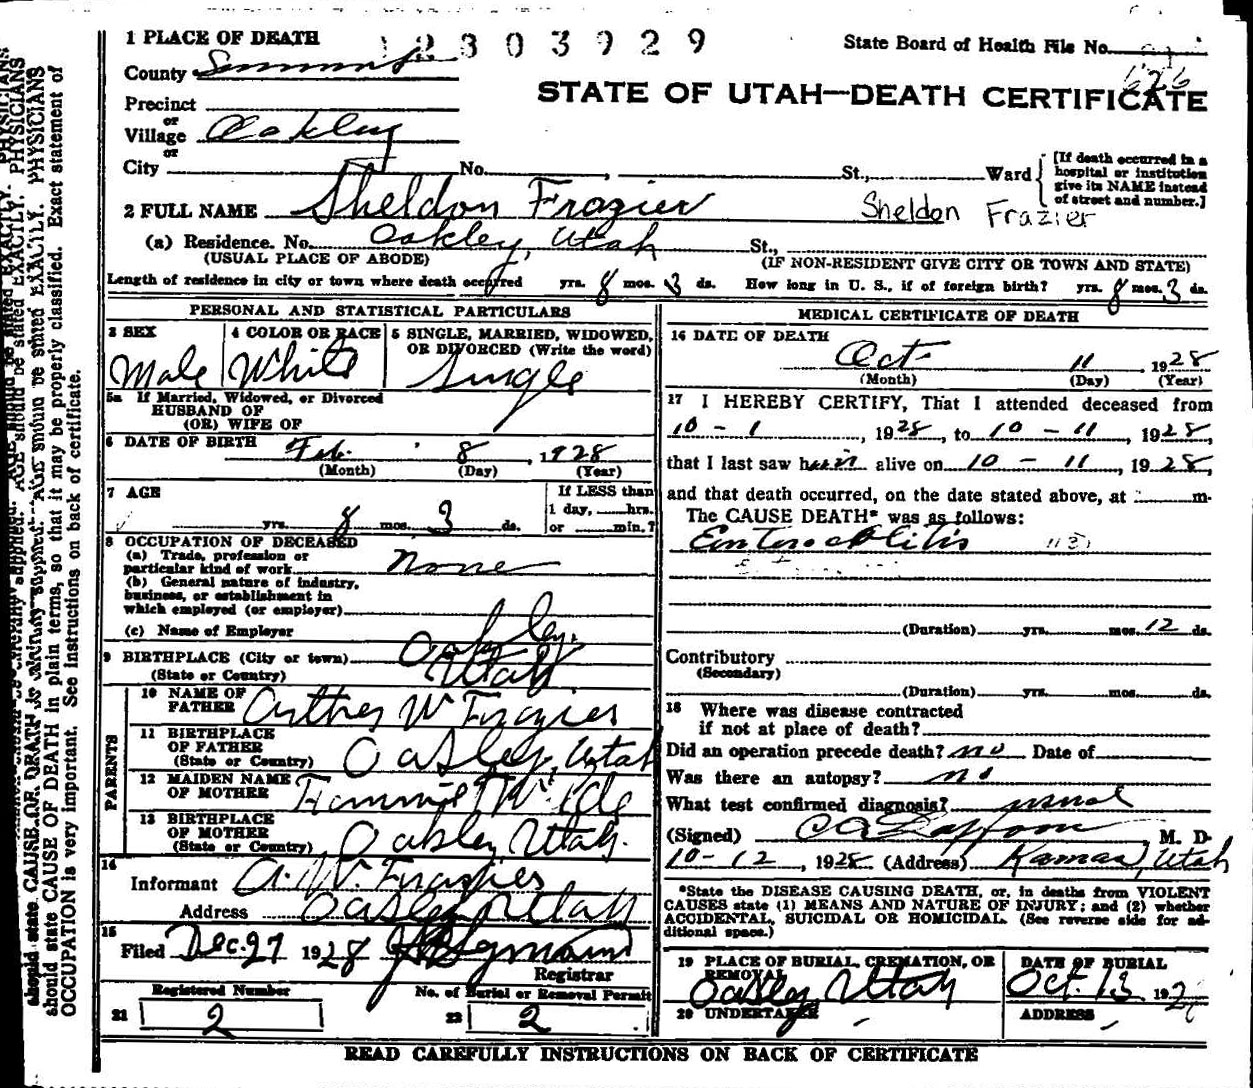 1 PLACE OF DEATH 12303929 State Board of Health File No.
County Summit
STATE OF UTAH—DEATH CERTIFICATE
Precinct
or
Village Oakley
or
City No. , St., Ward
[If death occurred in a hospital or institution give its NAME instead of street and number.]
2 FULL NAME Sheldon Frazier Sheldon Frazier
(a) Residence. No. Oakley, Utah St.,
(USUAL PLACE OF ABODE) (IF NON-RESIDENT GIVE CITY OR TOWN AND STATE)
Length of residence in city or town where death occurred yrs. 8 mos. 3 ds. How long in U. S., if of foreign birth? yrs. 8 mos. 3 ds.
PERSONAL AND STATISTICAL PARTICULARS
3 SEX 4 COLOR OR RACE 5 SINGLE, MARRIED, WIDOWED, OR DIVORCED (Write the word)
Male White Single
5a If Married, Widowed, or Divorced
HUSBAND OF
(OR) WIFE OF
6 DATE OF BIRTH Feb. 8, 1928
(Month) (Day) (Year)
7 AGE If LESS than
1 day, hrs.
yrs. 8 mos. 3 ds. or min.?
8 OCCUPATION OF DECEASED
(a) Trade, profession or
particular kind of work None
(b) General nature of industry,
business, or establishment in
which employed (or employer)
(c) Name of Employer
9 BIRTHPLACE (City or town) Oakley,
(State or Country) Utah
PARENTS
10 NAME OF
FATHER W Frazier
11 BIRTHPLACE
OF FATHER
(State or Country) Oakley, Utah
12 MAIDEN NAME
OF MOTHER
13 BIRTHPLACE
OF MOTHER
(State or Country) Oakley Utah.
14
Informant A. W. Frazier
Address Oakley Utah
15
Filed Dec. 27 1928
Registrar
Registered Number No. of Burial or Removal Permit
21 2 22 2
MEDICAL CERTIFICATE OF DEATH
16 DATE OF DEATH
Oct 11, 1928
(Month) (Day) (Year)
17 I HEREBY CERTIFY, That I attended deceased from
10 - 1, 1928, to 10 - 11, 1928,
that I last saw him alive on 10 - 11, 1928,
and that death occurred, on the date stated above, at m.
The CAUSE DEATH* was as follows:
Enterocolitis
(Duration) yrs. mos. 12 ds.
Contributory
(Secondary)
(Duration) yrs. mos. ds.
18 Where was disease contracted
if not at place of death?
Did an operation precede death? no Date of
Was there an autopsy? no
What test confirmed diagnosis? usual
(Signed) M. D.
10-12, 1928 (Address) Kamas, Utah
*State the DISEASE CAUSING DEATH, or, in deaths from VIOLENT
CAUSES state (1) MEANS AND NATURE OF INJURY; and (2) whether
ACCIDENTAL, SUICIDAL OR HOMICIDAL. (See reverse side for ad-
ditional space.)
19 PLACE OF BURIAL, CREMATION, OR REMOVAL DATE OF BURIAL
Oakley, Utah Oct. 13 192
20 UNDERTAKER ADDRESS
READ CAREFULLY INSTRUCTIONS ON BACK OF CERTIFICATE
should state CAUSE OF DEATH in plain terms, so that it may be properly classified. Exact statement of
OCCUPATION is very important. See instructions on back of certificate.